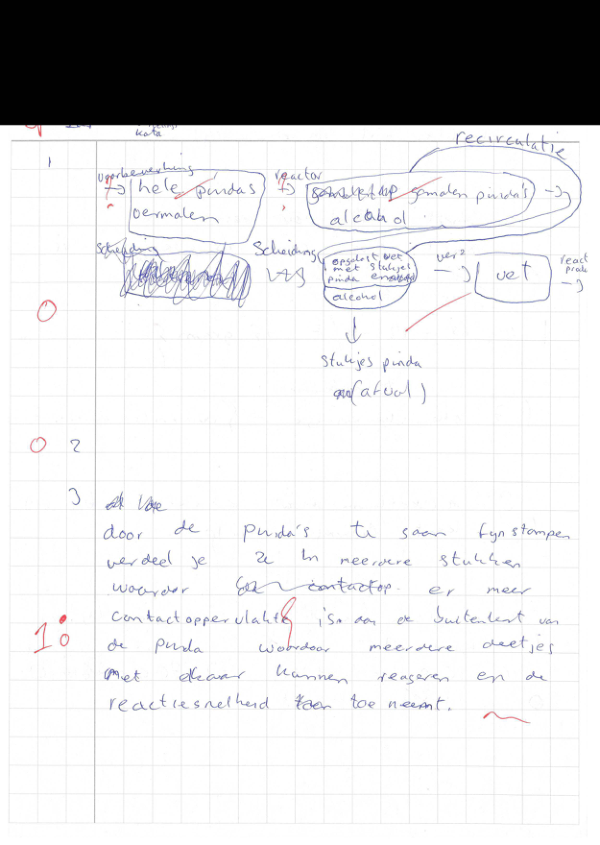 kata
recirculatie
1
voorbewerking
reactor
hele pinda's
vermalen
gemalen pinda's
alcohol
Scheiding
Scheiding
opgelost vet
met stukjes
pinda
alcohol
vet
react
stukjes pinda
(afval)
0
0 2
3
door de pinda's te gaan fynstampen
verdeel je ze in meerdere stukken
waardoor er meer
contactoppervlakte is aan de buitenkant van
1 0
de pinda waardoor meerdere deeltjes
met elkaar kunnen reageren en de
reactiesnelheid toe neemt.